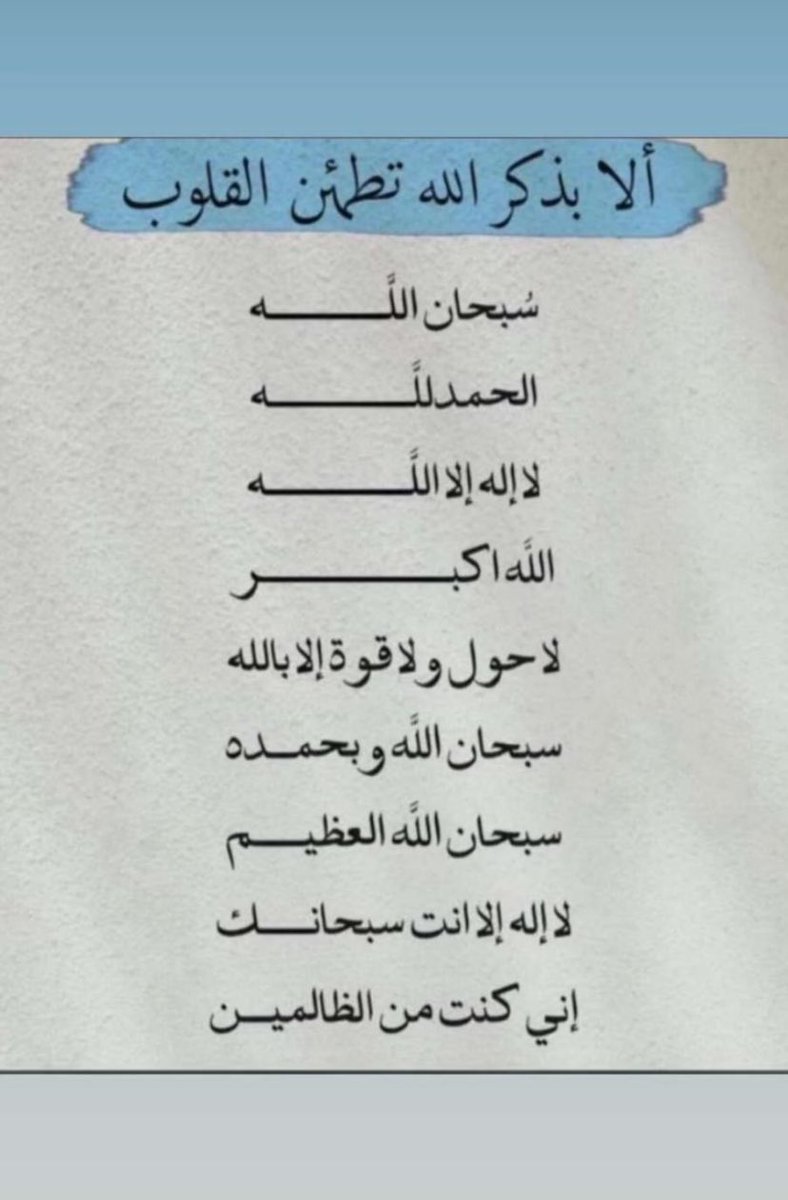 ألا بذكر الله تطمئن القلوب
سُبحان اللَّـــــــــه
الحمدللَّـــــــــه
لا إله إلا اللَّـــــــــه
اللَّه اكبـــــــــــر
لا حول ولا قوة إلا بالله
سبحان اللَّه وبحمـــده
سبحان اللَّه العظيـــم
لا إله إلا انت سبحانـــك
إني كنت من الظالميـــن